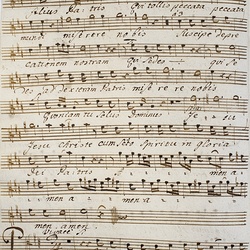 filius Patris Qui tollis peccata peccata
mundi miserere nobis Suscipe depre
cationem nostram Qui sedes qui se
des ad dexteram Patris miserere nobis
Quoniam tu solus Dominus Je
Jesu christe cum Sto Spiritu in gloria
Dei Patris amen a
men a men a
men amen